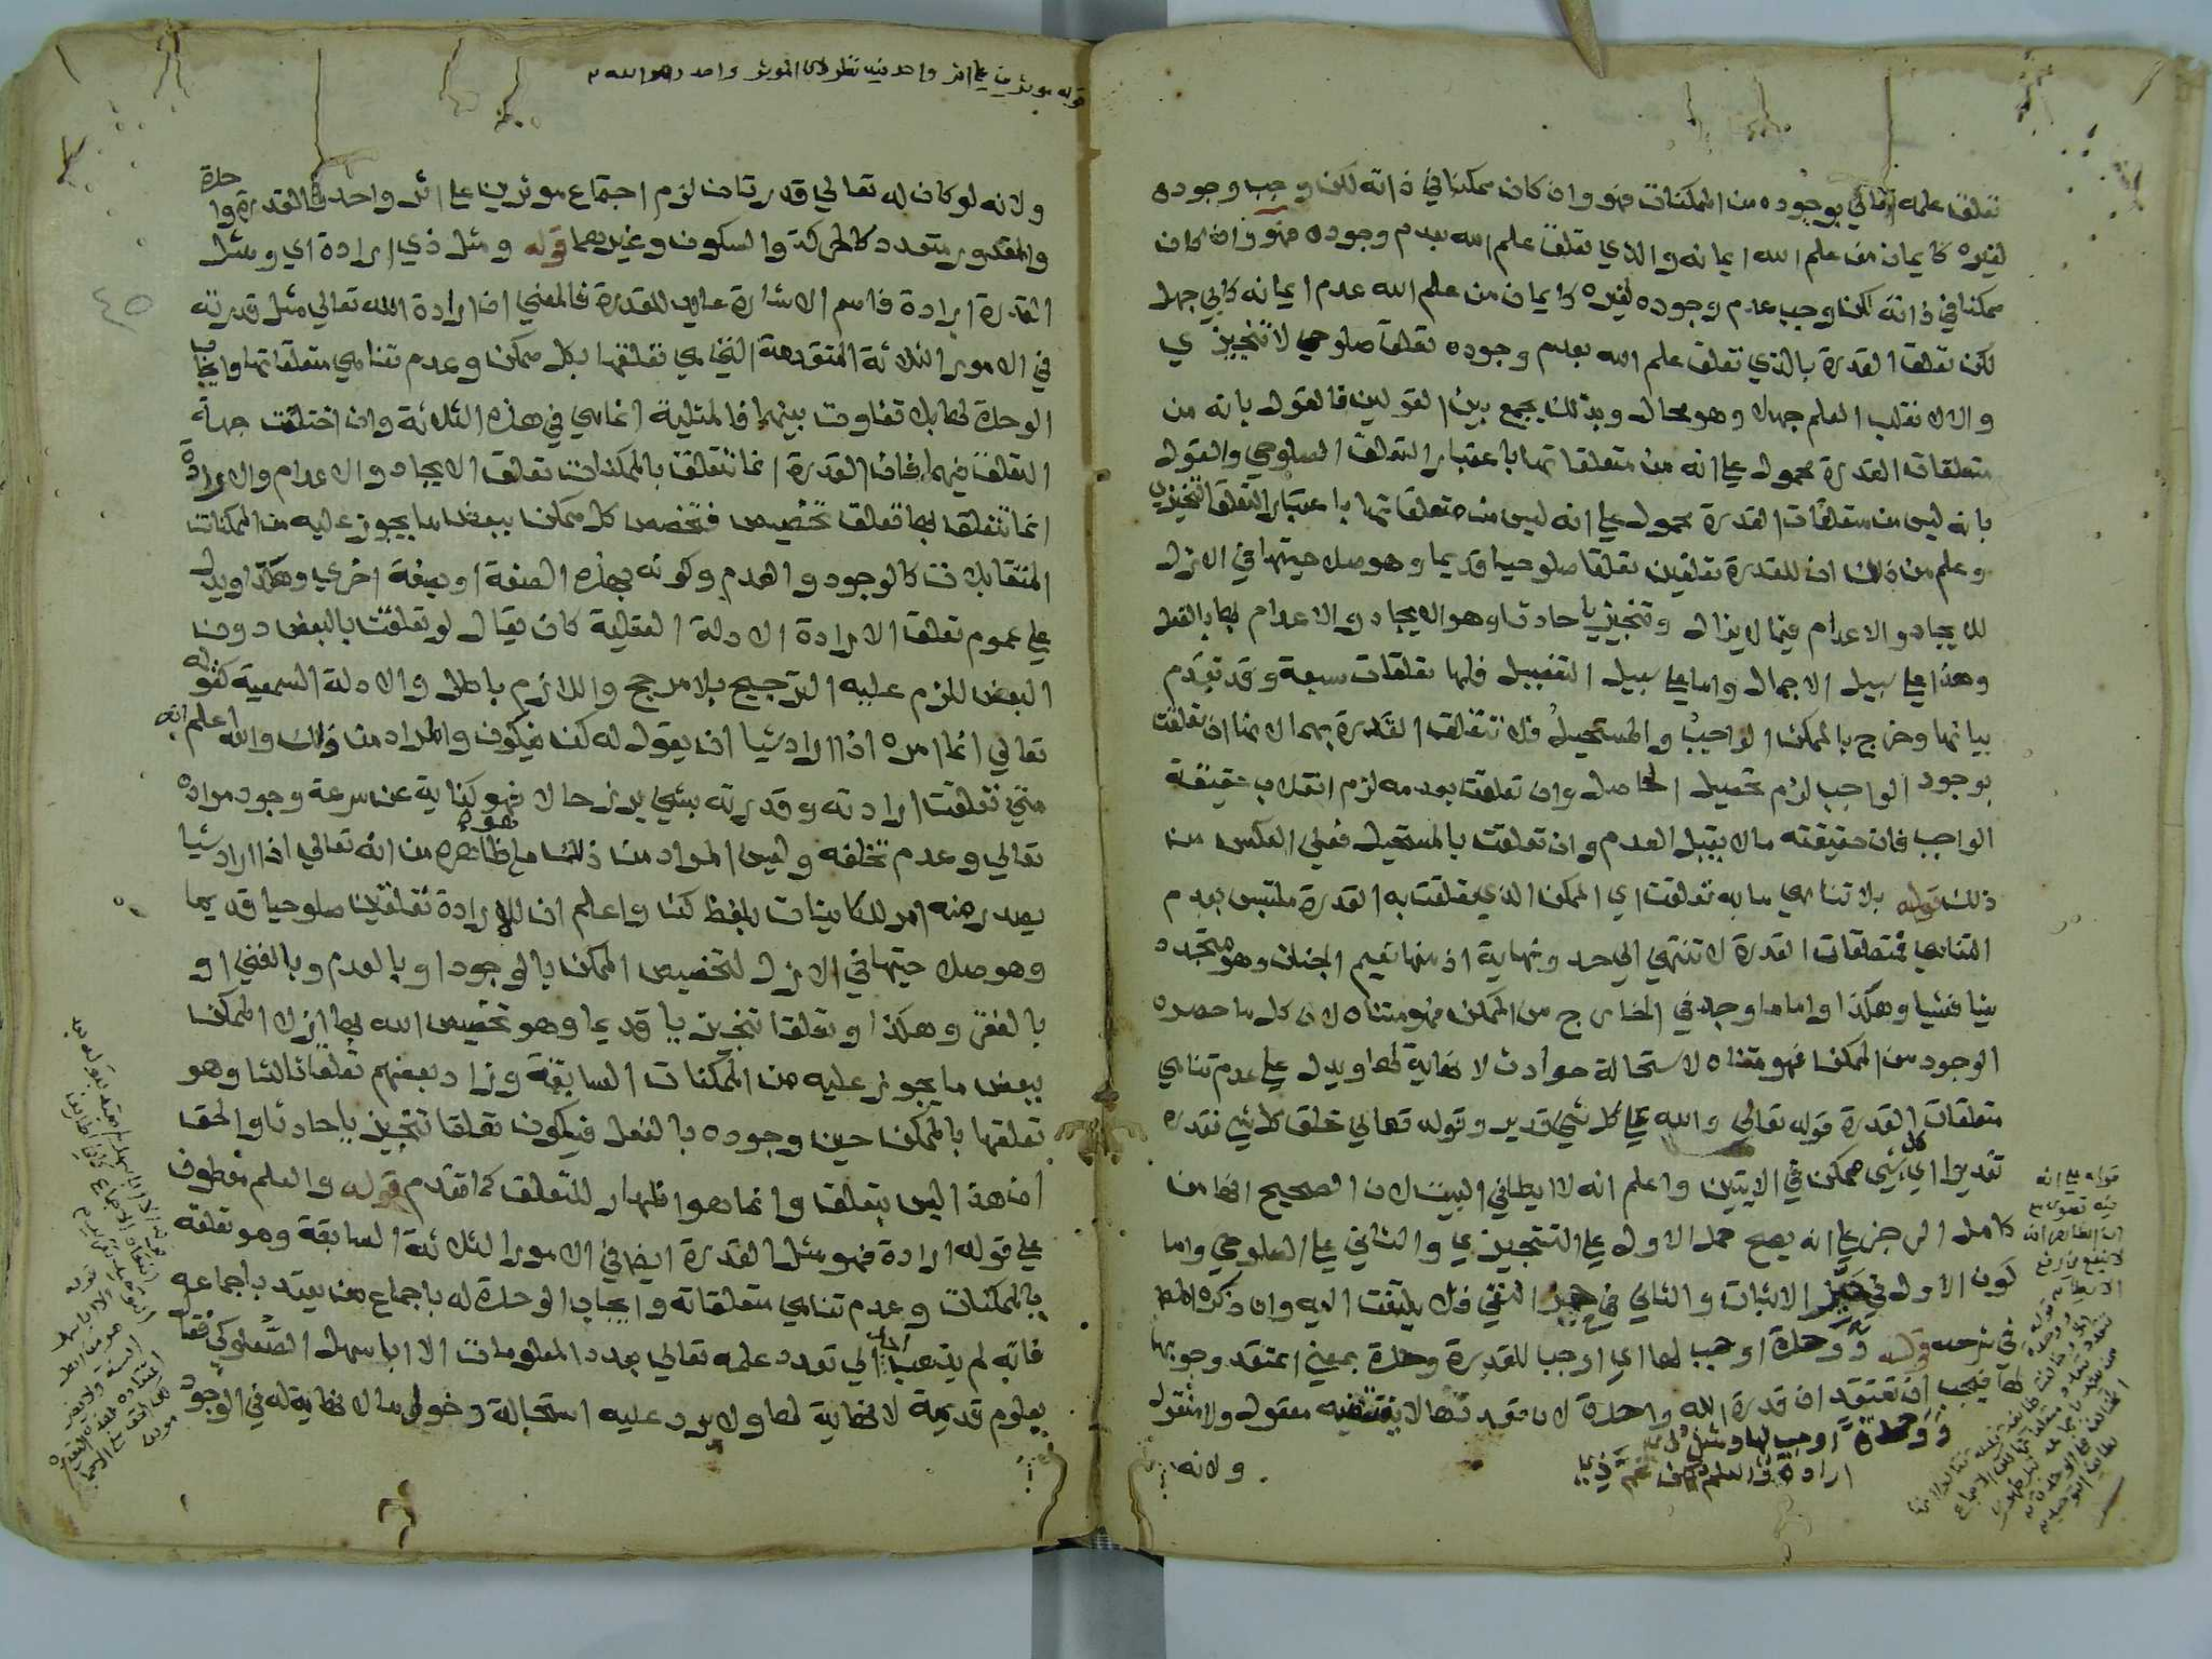 تعلق علمه تعالي بوجوده من الممكنات فهو وان كان ممكنا في ذاته لكن وجب وجوده
لغيره كايمان من علم الله ايمانه والذي تعلق علم الله بعدم وجوده فهو وان كان
ممكنا في ذاته لكن وجب عدم وجوده لغيره كايمان من علم الله عدم ايمانه كابي جهل
لكن تعلق القدرة بالذي تعلق علم الله بعدم وجوده تعلق صلوحي لا تنجيزي
والا لانقلب العلم جهلا وهو محال وبذلك يجمع بين القولين فالقول بانه من
متعلقات القدرة محمول علي انه من متعلقاتها باعتبار التعلق الصلوحي والقول
بانه ليس من متعلقات القدرة محمول علي انه ليس من متعلقاتها باعتبار التعلق التنجيزي
وعلم من ذلك ان للقدرة تعلقين تعلقا صلوحيا قديما وهو صلاحيتها في الازل
للايجاد والاعدام فيما لا يزال وتنجيزيا حادثا وهو الايجاد والاعدام بها بالفعل
وهذا علي سبيل الاجمال واما علي سبيل التفصيل فلها تعلقات سبعة وقد تقدم
بيانها وخرج بالممكن الواجب والمستحيل فلا تتعلق القدرة بهما لانها ان تعلقت
بوجود الواجب لزم تحصيل الحاصل وان تعلقت بعدمه لزم انقلاب حقيقة
الواجب فان حقيقته ما لا يقبل العدم وان تعلقت بالمستحيل فعلي العكس من
ذلك قوله بلا تناهي ما به تعلقت اي الممكن الذي تعلقت به القدرة ملتبس بعدم
التناهي فمتعلقات القدرة لا تنتهي الي حد ونهاية اذ منها نعيم الجنان وهو متجدد
شيا فشيا وهكذا واما ما وجد في الخارج من الممكن فهو متناه لان كل ما حصره
الوجود من الممكن فهو متناه لاستحالة حوادث لا نهاية لها ويدل علي عدم تناهي
متعلقات القدرة قوله تعالي والله علي كل شي قدير وقوله تعالي خلق كل شي فقدره
تقديرا اي كل شي ممكن في الايتين واعلم انه لا ايطا في البيت لان الصحيح انها من
كامل الرجز علي انه يصح حمل الاول علي التنجيزي والثاني علي الصلوحي واما
كون الاول في حيز الاثبات والثاني في حيز النفي فلا يلتفت اليه وان ذكره المصـ
في شرحه قوله ووحدة اوجب لها اي اوجب للقدرة وحدة بمعني اعتقد وجوبها
لها فيجب ان تعتقد ان قدرة الله واحدة لان تعددها لا يقتضيه معقول ولا منقول
ووحدة اوجب لها ومثل ذي
ارادة والعلم لكن عم ذي
ولانه
قوله علي انه
قوله موثرين علي اثر واحد فيه نظر لان الموثر واحد وهو الله
ولانه لو كان له تعالي قدرتان لزم اجتماع موثرين علي اثر واحد فالقدرة واحدة
والمقدور متعدد كالحركة والسكون وغيرهما قوله ومثل ذي ارادة اي ومثل
القدرة ارادة فاسم الاشارة عايد للقدرة فالمعني ان ارادة الله تعالي مثل قدرته
في الامور الثلاثة المتقدمة التي هي تعلقها بكل ممكن وعدم تناهي متعلقاتها وايجاب
الوحدة لها بلا تفاوت بينهما فالمثلية انما هي في هذه الثلاثة وان اختلفت جهة
التعلق فيهما فان القدرة انما تتعلق بالممكنات تعلق الايجاد والاعدام والارادة
انما تتعلق بها تعلق تخصيص فتخصص كل ممكن ببعض ما يجوز عليه من الممكنات
المتقابلات كالوجود والعدم وكونه بهذه الصفة او بصفة اخري وهكذا ويدل
علي عموم تعلق الارادة الادلة العقلية كان يقال لو تعلقت بالبعض دون
البعض للزم عليه الترجيح بلا مرجح واللازم باطل والادلة السمعية كقوله
تعالي انما امره اذا اراد شيا ان يقول له كن فيكون والمراد من ذلك والله اعلم انه
متي تعلقت ارادته وقدرته بشي برز حالا فهو كناية عن سرعة وجود مراده
تعالي وعدم تخلفه وليس المراد من ذلك ما هو ظاهره من انه تعالي اذا اراد شيا
يصدر منه امر للكاينات بلفظ كن واعلم ان للارادة تعلقين صلوحيا قديما
وهو صلاحيتها في الازل لتخصيص الممكن بالوجود او بالعدم وبالغني او
بالفقر وهكذا وتعلقا تنجيزيا قديما وهو تخصيص الله بها ازلا الممكن
ببعض ما يجوز عليه من الممكنات السابقة وزاد بعضهم تعلقا ثالثا وهو
تعلقها بالممكن حين وجوده بالفعل فيكون تعلقا تنجيزيا حادثا والحق
ان هذا ليس بتعلق وانما هو اظهار للتعلق كما تقدم قوله والعلم معطوف
علي قوله ارادة فهو مثل القدرة ايضا في الامور الثلاثة السابقة وهو تعلقه
بالممكنات وعدم تناهي متعلقاته وايجاب الوحدة له باجماع من يعتد باجماعه
فانه لم يذهب احد الي تعدد علمه تعالي بعدد المعلومات الا ابا سهل الصعلوكي فقال
بعلوم قديمة لا نهاية لها ولا يرد عليه استحالة دخول ما لا نهاية له في الوجود